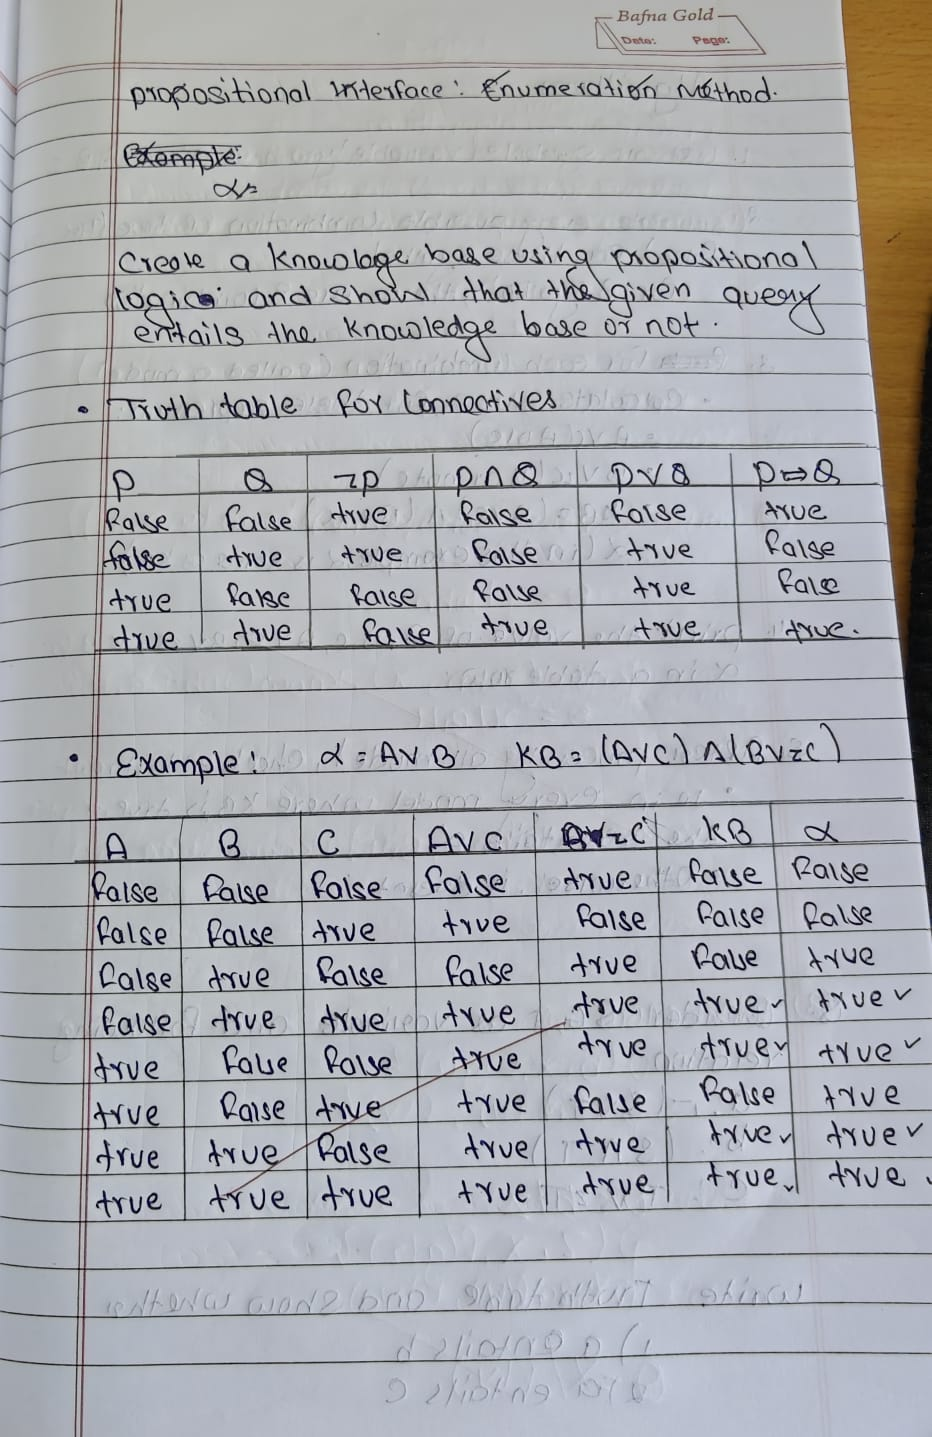 Bafna Gold
Date: Page:
propositional Interface: Enumeration Method.
Example:
α=
Create a knowlage base using propositional
logic and show that the given query
entails the knowledge base or not.
• Truth table for Connectives
P Q ¬P P∧Q P∨Q P⇔Q
false false true false false true
false true true false true false
true false false false true false
true true false true true true.
• Example: α = A∨B KB = (A∨C) ∧ (B∨¬C)
A B C A∨C B∨¬C KB α
false false false false true false false
false false true true false false false
false true false false true false true
false true true true true true✓ true✓
true false false true true true✓ true✓
true false true true false false true
true true false true true true✓ true✓
true true true true true true✓ true✓